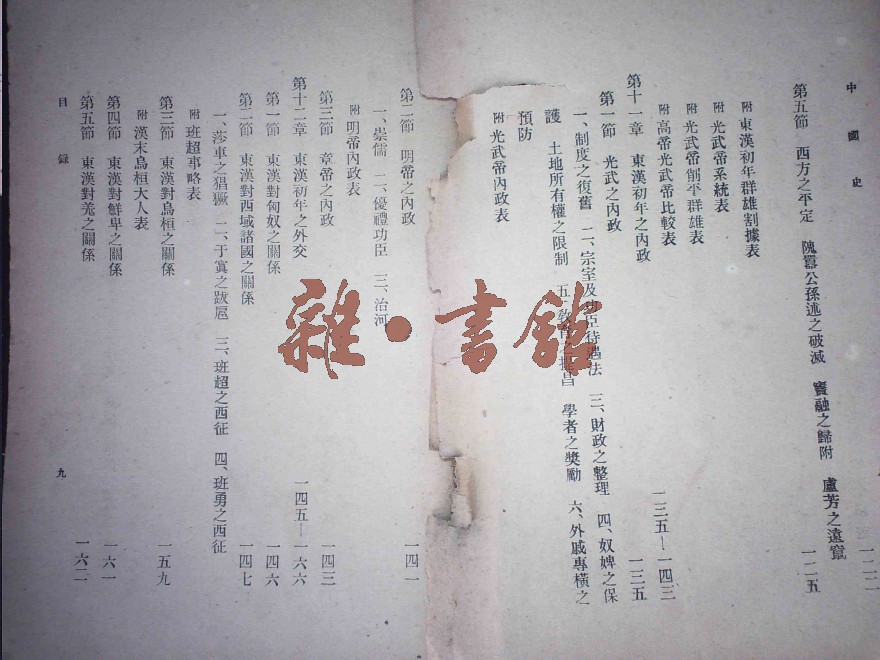 中國史
一二二
第五節 西方之平定 隗囂公孫述之破滅 竇融之歸附 盧芳之遠竄 一二五
附 東漢初年群雄割據表
附 光武帝系統表
附 光武帝削平群雄表
附 高帝光武帝比較表
第十一章 東漢初年之內政 一三五—一四三
第一節 光武之內政 一三五
一、制度之復舊 二、宗室及功臣待遇法 三、財政之整理 四、奴婢之保
護 土地所有權之限制 五、教育之提昌 學者之獎勵 六、外戚專橫之
預防
附 光武帝內政表
第二節 明帝之內政 一四一
一、崇儒 二、優禮功臣 三、治河
附 明帝內政表
第三節 章帝之內政 一四三
第十二章 東漢初年之外交 一四五—一六六
第一節 東漢對匈奴之關係 一四六
第二節 東漢對西域諸國之關係 一四七
一、莎車之猖獗 二、于寘之跋扈 三、班超之西征 四、班勇之西征
附 班超事略表
第三節 東漢對烏桓之關係 一五九
附 漢末烏桓大人表
第四節 東漢對鮮卑之關係 一六一
第五節 東漢對羌之關係 一六二
目錄 九
雜·書館